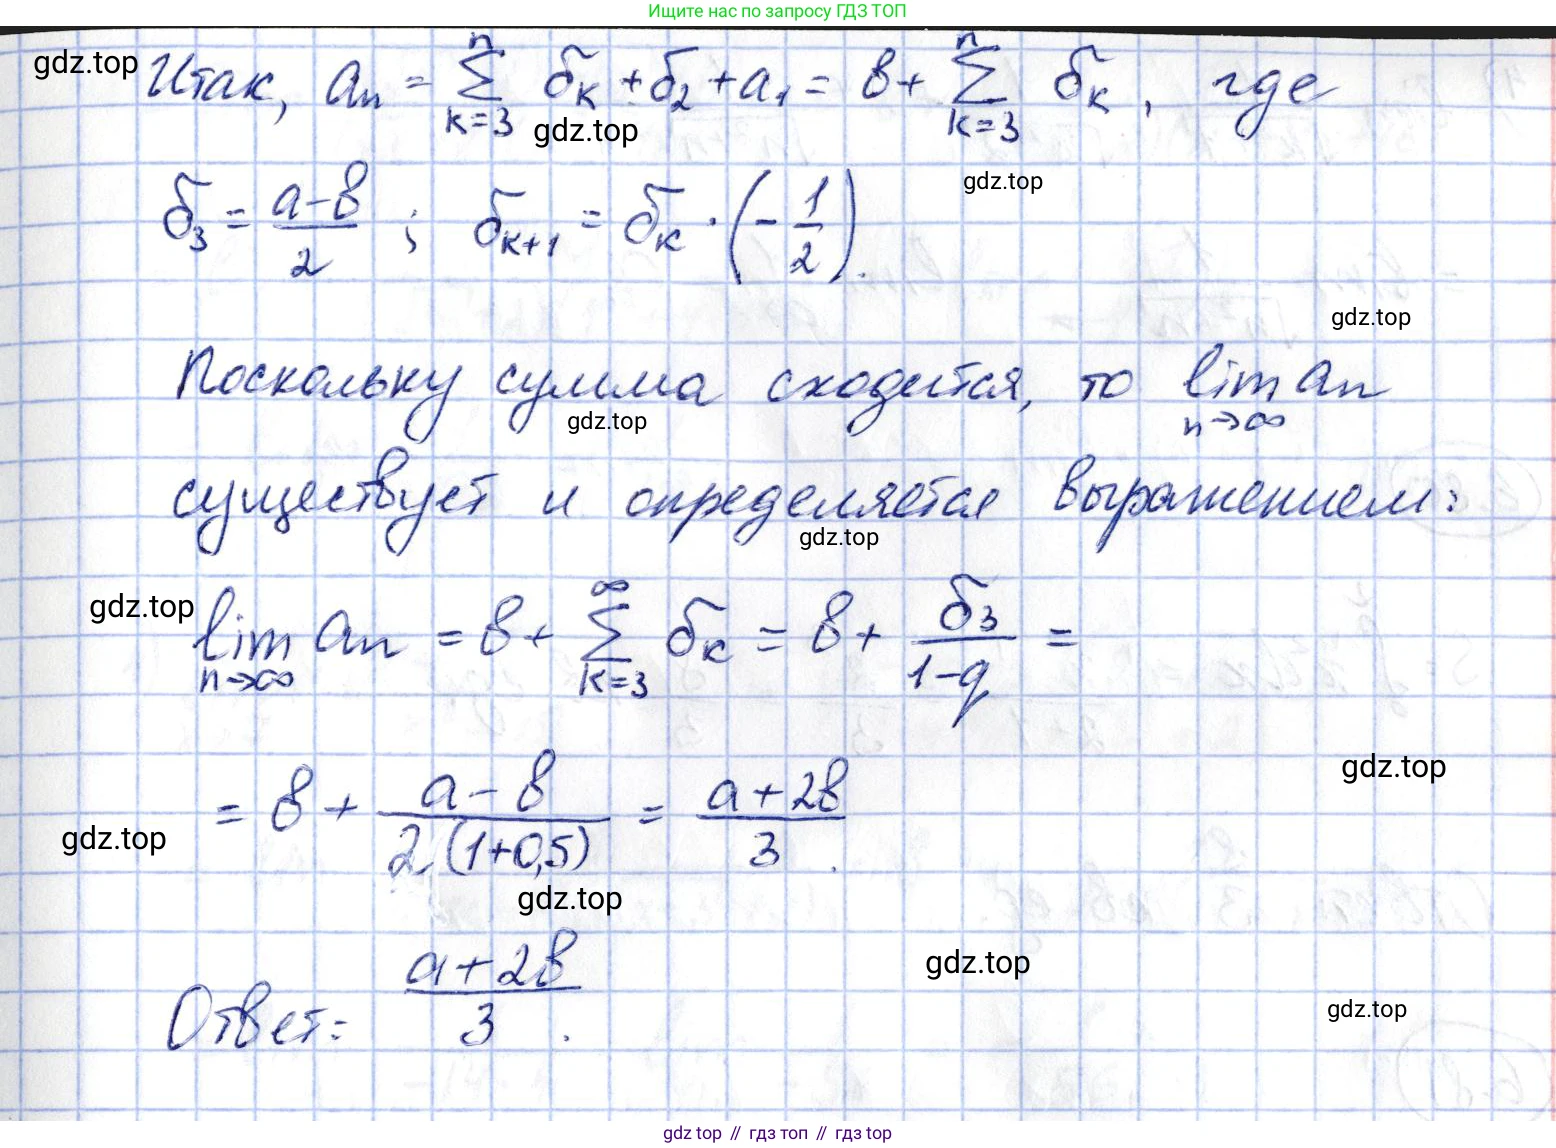 Ищите нас по запросу ГДЗ ТОП
gdz.top
Итак, aₙ = ∑ₖ₌₃ⁿ δₖ + δ₂ + a₁ = в + ∑ₖ₌₃ⁿ δₖ, где
gdz.top
gdz.top
δ₃ = (a-в)/2 ; δₖ₊₁ = δₖ · (-1/2).
gdz.top
Поскольку сумма сходится, то lim n→∞ aₙ
gdz.top
существует и определяется выражением:
gdz.top
gdz.top
lim n→∞ aₙ = в + ∑ₖ₌₃^∞ δₖ = в + δ₃/(1-q) =
gdz.top
= в + (a-в)/(2(1+0,5)) = (a+2в)/3.
gdz.top
gdz.top
gdz.top
Ответ: (a+2в)/3.
gdz.top
gdz top // гдз топ // гдз top